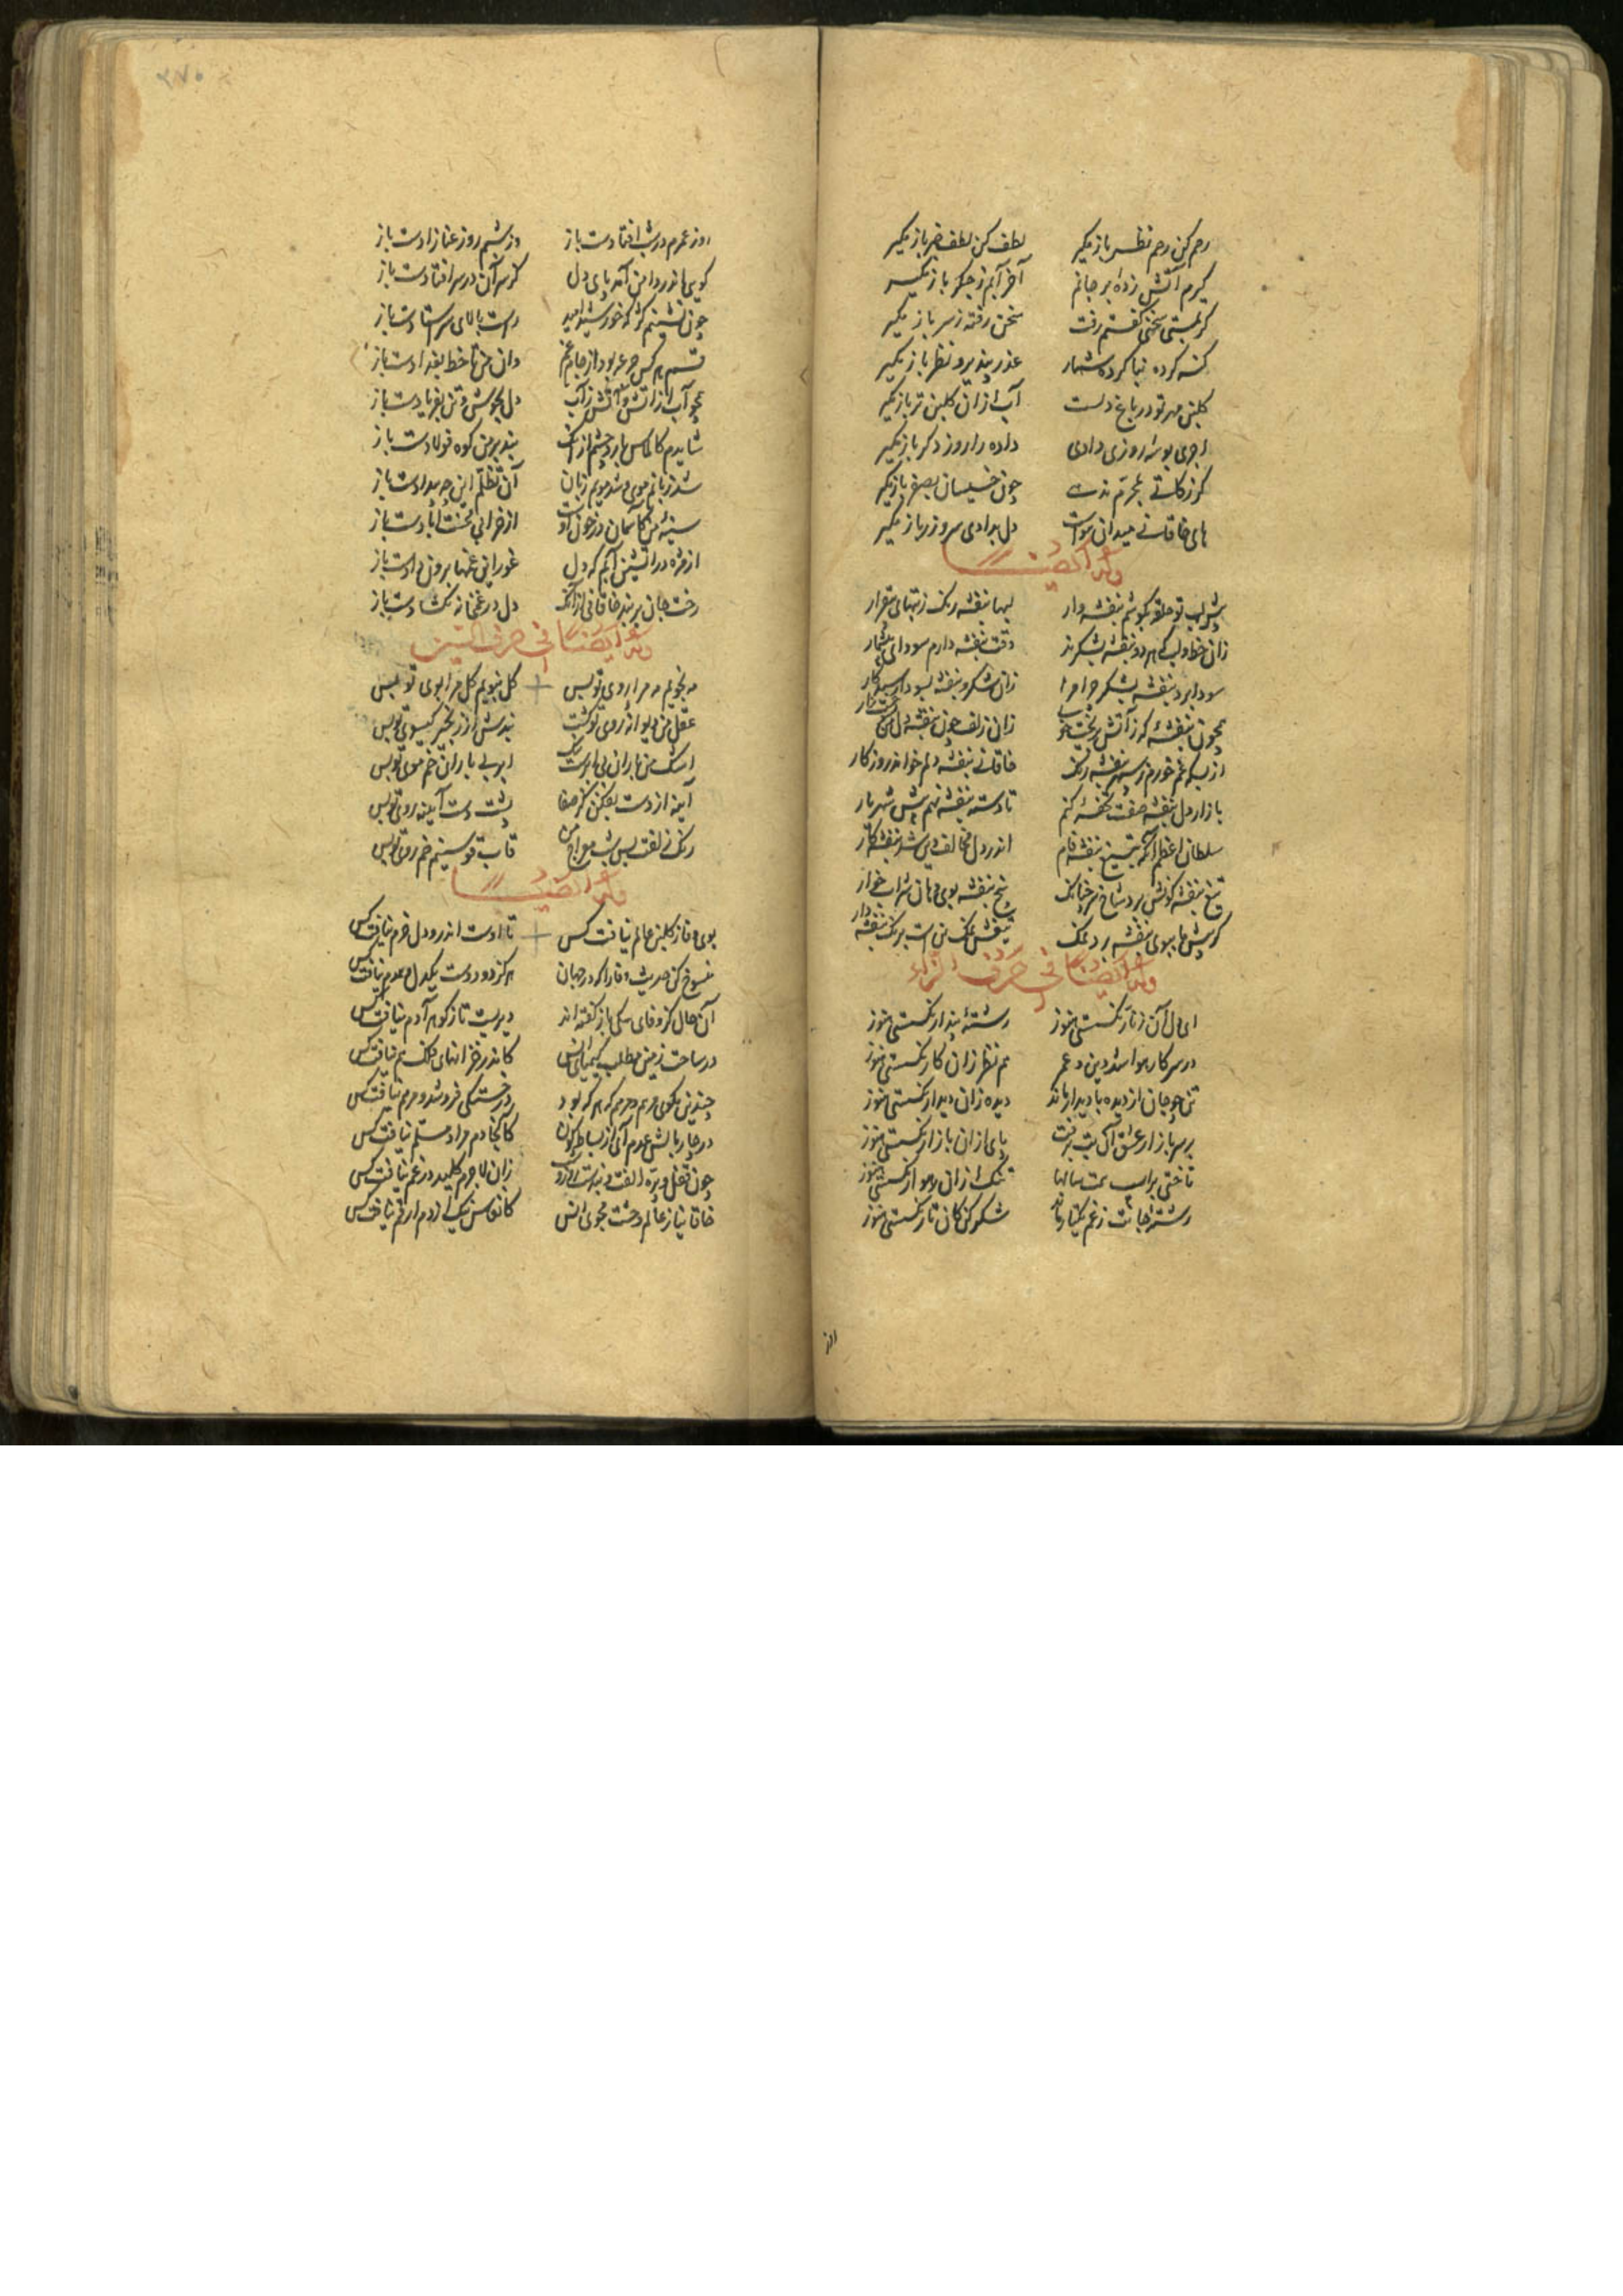 رحم کن رحم نظر باز مگیر لطف کن لطف خبر باز مگیر
گیرم آتش زده بر جانم آخر آبم ز جگر باز مگیر
گر بمستی سخنی گفتم رفت سخن رفته ز سر باز مگیر
گنه کرده نباکرده شمار عذر بپذیر و نظر باز مگیر
گلبن مهر تو در باغ دلست آب ازان گلبن تر باز مگیر
اجری بوسه روزی دادی داده را روز دگر باز مگیر
گر زکاتی بمحرم ندهی چون خسیسان بصفر باز مگیر
های خاقانی میدان هواست دل بدادی سر و زر باز مگیر
وله ایضا
پیش لب تو حلقه بگوشم بنفشه وار لبها بنفشه رنگ ز تبهای بیقرار
زان خط و لب که هر دو بنفشه بشکرند وقت بنفشه دارم سودای بیشمار
سودا برد بنفشه بشکر چرا مرا زان شکر و بنفشه بسودا رسید کار
همچون بنفشه کز آتش بریخت خوی زان زلف چون بنفشه دل من
از بس که غم خورم ز سپهر بنفشه رنگ خاقانی بنفشه دلم خواند روزگار
بازار دل بنفشه صفت تحفه کنم تا دسته بنفشه نهم پیش شهریار
سلطان اعظم آنکه بتیغ بنفشه فام اندر دل مخالف دین شد بنفشه کار
وله ایضا فی حرف الزاء
ای دل آن زنار نگسستی هنوز رشته پندار نگسستی هنوز
در سر کار هوا شد دین و عمر هم نظر زان کار نگسستی هنوز
تن چو جان از دیده نادیدار ماند دیده زان دیدار نگسستی هنوز
بر سر بازار عشق آب برفت پای ازان بازار نگسستی هنوز
تاختی بر اسب همت سالها تنگ ازان رهوار نگسستی هنوز
رشته جانت ز غم یکتار ماند شکر کن کان تار نگسستی هنوز
۳۷۰
روز عمرم در شب افتادست باز وز شبم روز عنا زادست باز
گویی اندر دامن آمد پای دل کز سر آن در سر افتادست باز
چون نشینم کژ که خورشید امید راست بالای سر استادست باز
قسم هر کس جرعه بود از جام غم وان من تا خط بغدادست باز
همچو آب از آتش و آتش ز آب دل بجوش و تن بفریادست باز
شایدم کالماس بارد چشم ازانک بند بر من کوه فولادست باز
شد زبانم موی و شد مویم زبان از تظلم این چه بیدادست باز
سینه من کاسمان در خون اوست از خرابی محنت آبادست باز
از مژه در آتشین آبم که دل غوراین غمها برون دادست باز
رخت جان بر بند خاقانی ازانک دل در غمخانه بگشادست باز
وله ایضا فی حرف السین
مه نجویم مه مرا روی تو بس گل نبویم گل مرا بوی تو بس
عقل من دیوانه روی تو گشت بندش از زنجیر گیسوی تو بس
اشک من باران بی ابرست لیک ابر بی باران خم موی تو بس
آینه از دست بفکن کز صفا پشت دست آیینه روی تو بس
رنگ زلفت بس شب معراج من قاب قوسینم خم روی تو بس
وله ایضا
بوی وفا ز گلبن عالم نیافت کس تا اوست اندرو دل خرم نیافت کس
منسوخ کن حدیث وفا را که در جهان هرگز دو دوست یکدل و همدم نیافت کس
آن حال کز وفای سگی باز گفته‌اند دیریست تا ز گوهر آدم نیافت کس
در ساحت زمین مطلب کیمیای انس کاندر خزانهای فلک هم نیافت کس
چندین مگوی مرهم و مرهم که هر که بود در خستگی فرو شد و مرهم نیافت کس
در چار بالش عدم آی از بساط کون کانجا دم مراد مسلم نیافت کس
زان لاجرم کلید در غم نیافت کس
خاقانیا ز عالم وحشت مجوی انس کانفاس نیک ازدم ارقم نیافت کس